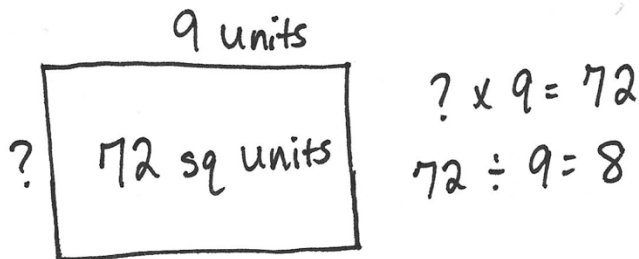 9 units
? 72 sq units
? x 9 = 72
72 ÷ 9 = 8